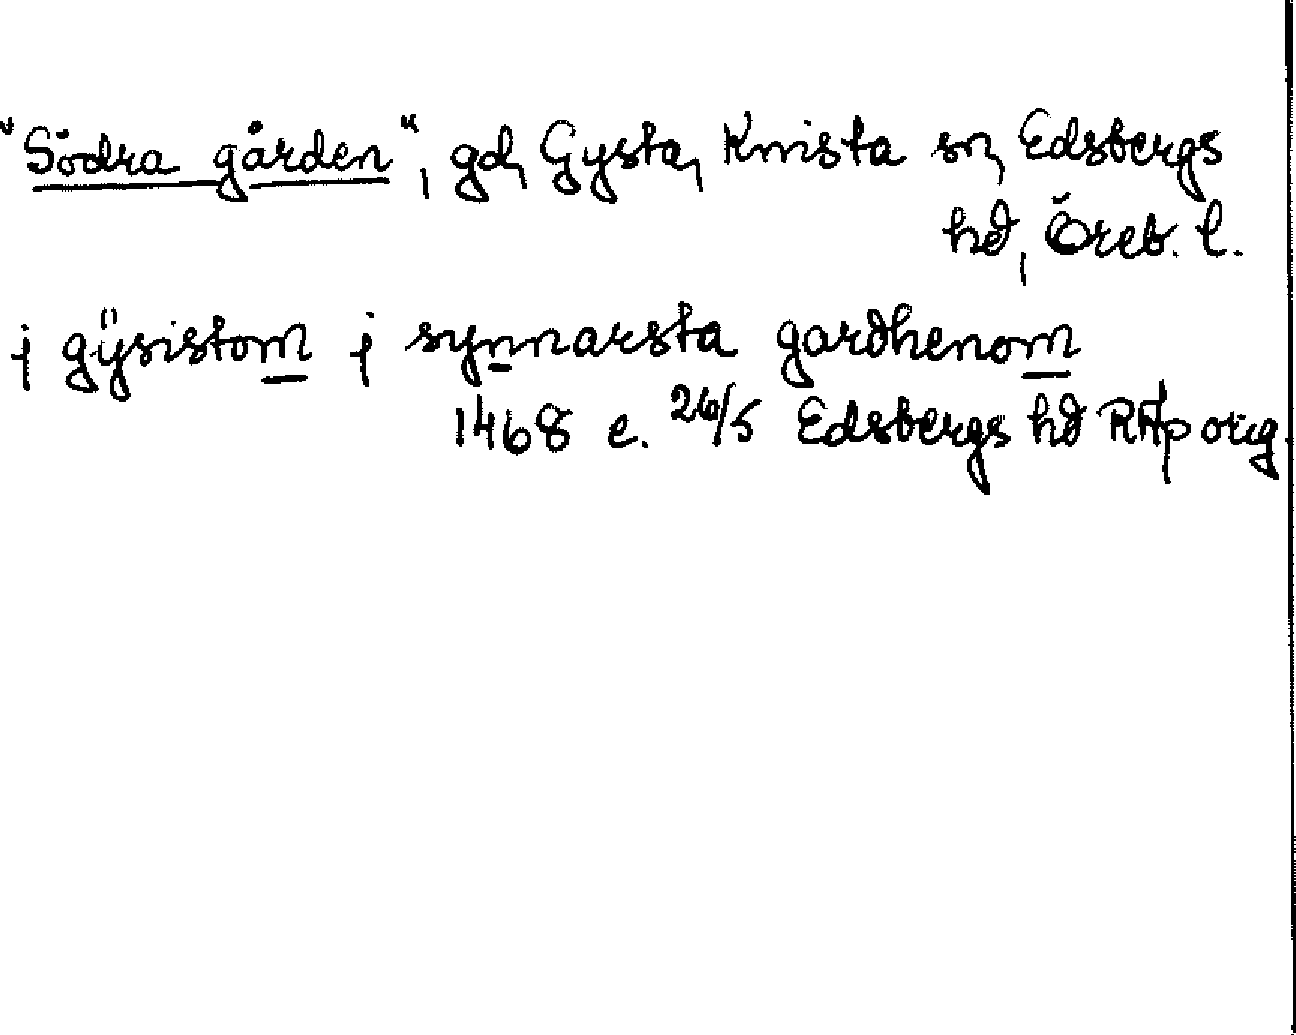 "Södra gården", gd, Gysta, Knista sn, Edsbergs
hd, Öreb. l.
j gÿsistom j synnarsta gardhenom
1468 e. 26/5 Edsbergs hd RAp orig.